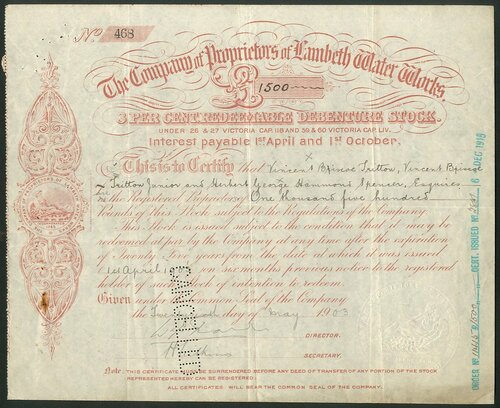 No 468
The Company of Proprietors of Lambeth Water Works.
£ 1500
3 PER CENT. REDEEMABLE DEBENTURE STOCK.
UNDER 26 & 27 VICTORIA CAP. 118 AND 59 & 60 VICTORIA CAP. LIV.
Interest payable 1st April and 1st October.
This is to Certify that Vincent Briscoe Tritton, Vincent Briscoe
Tritton Junior and Herbert George Hammond Spencer, Esquires
the Registered Proprietors of One thousand five hundred
Pounds of this Stock subject to the Regulations of the Company.
This Stock is issued subject to the condition that it may be
redeemed at par by the Company at any time after the expiration
of Twenty Five years from the date at which it was issued
1st April on six months previous notice to the registered
holder of such Stock of intention to redeem.
Given under the Common Seal of the Company
the day of May 1903
DIRECTOR.
SECRETARY.
CANCELLED
Note: THIS CERTIFICATE MUST BE SURRENDERED BEFORE ANY DEED OF TRANSFER OF ANY PORTION OF THE STOCK
REPRESENTED HEREBY CAN BE REGISTERED.
ALL CERTIFICATES WILL BEAR THE COMMON SEAL OF THE COMPANY.
CERT. ISSUED
6 DEC 1918